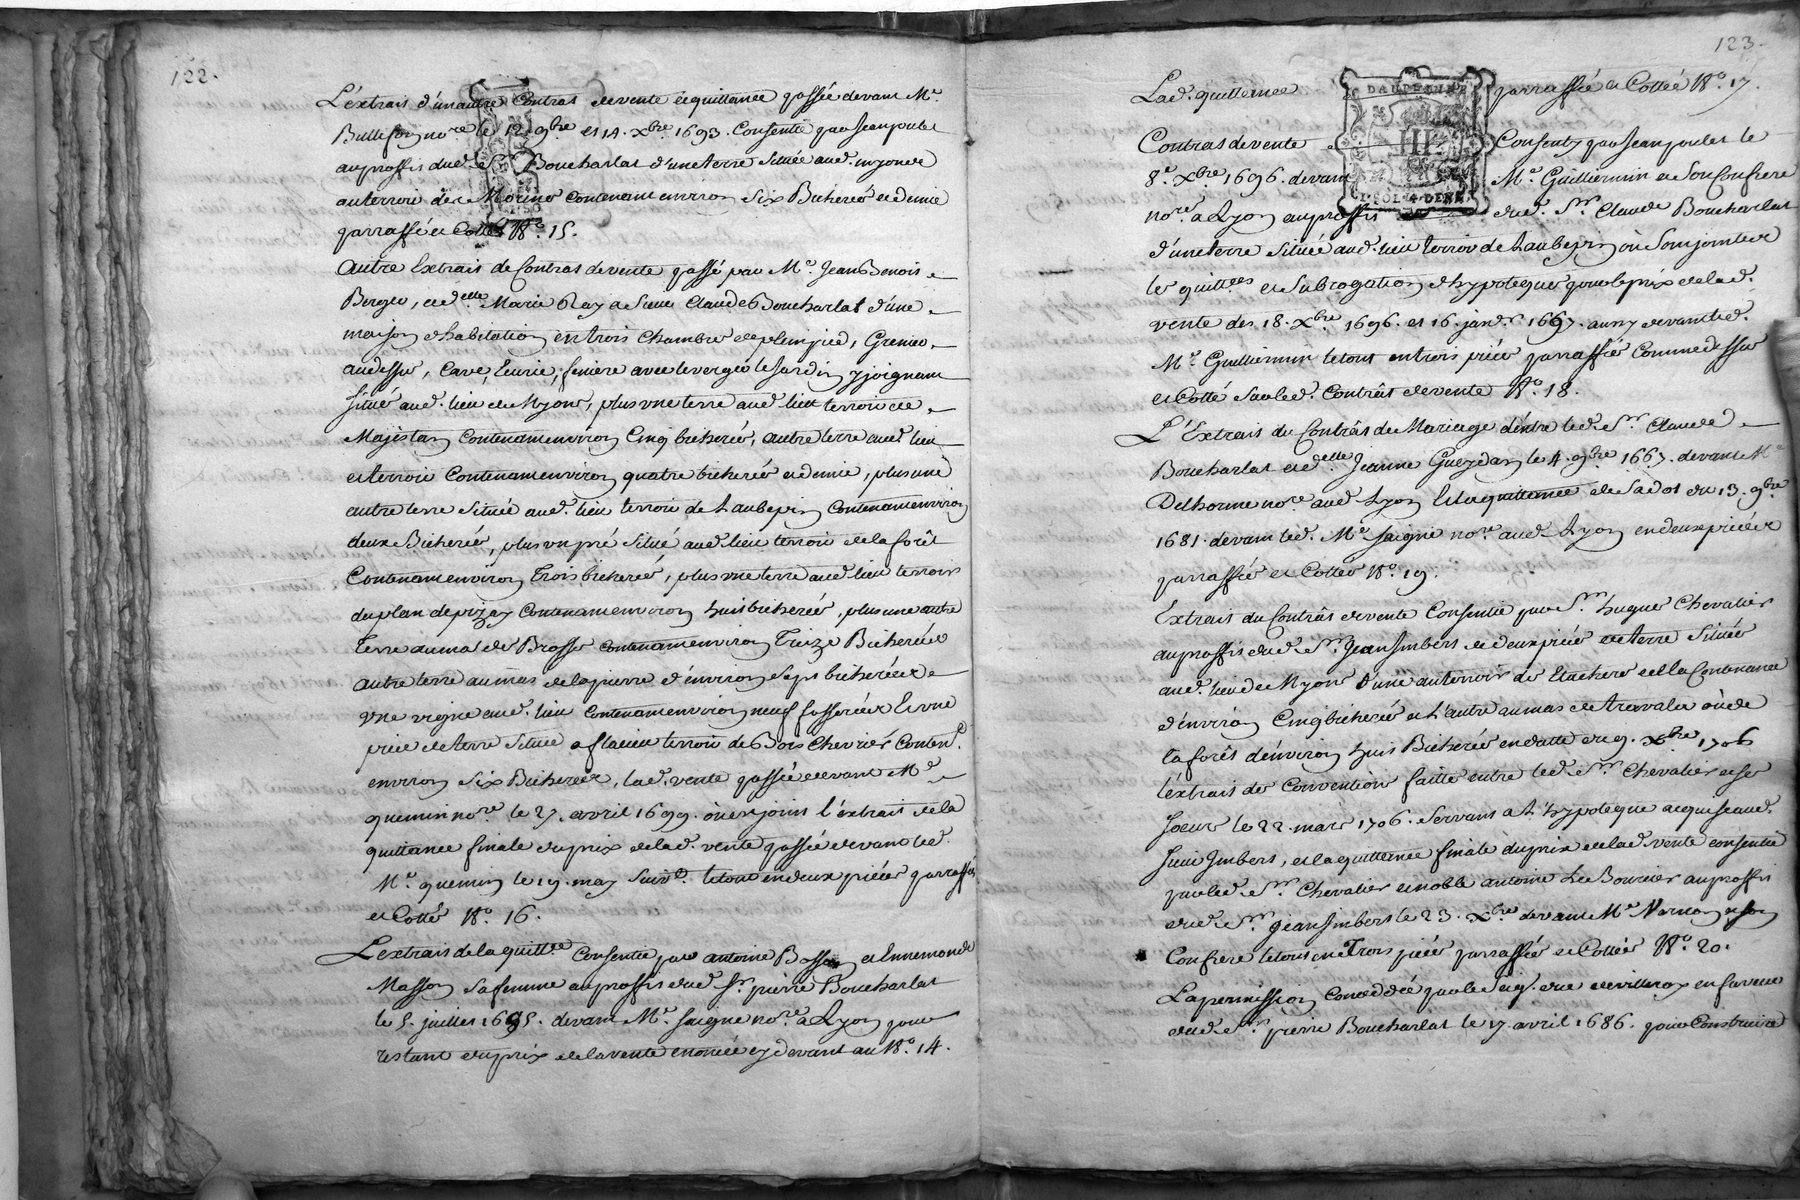 122.
L'extrais d'un autre Contras de vente et quittance passée devant Me.
Bullefon nore. le 12. 9bre et 14. Xbre 1693. Consentie par Jean poulet
au proffis dud. Sr. Boucharlat d'une terre Située aud. myons
au terroir des Morines Contenant environ Six Bicherées et demie
parraffé et Cotté No. 15.
Autre Extrais de Contras de vente passé par Me. Jean Benois
Berger, et delle Marie Ray a Sieur Claude Boucharlat d'une
maison d'habitation en trois Chambres de plein pied, Grenier
au dessus, Cave, Ecurie, feniere avec le verger le Jardin y joignant
Situé aud. lieu de Myons, plus une terre aud. lieu terroir de
Majestan Contenant environ Cinq bicherées, autre terre aud. lieu
et terroir Contenant environ quatre bicherées et demie, plus une
autre terre Située aud. lieu terroir de Laubepin Contenant environ
deux Bicherées, plus un pré Situé aud. lieu terroir de la forêt
Contenant environ Trois bicherées, plus une terre aud. lieu terroir
du plan de pizay Contenant environ huit bicherées, plus une autre
Terre au mas des Brosses Contenant environ Treize Bicherées
autre terre au mas de la pierre d'environ Sept bicherées
Une vigne aud. lieu Contenant environ neuf fosserées Et une
piece de terre Située a flacieu terroir de Bois Chevrier Conten.
environ Six Bicherées, lad. vente passée devant Me.
quemin nore. le 27. avril 1699. où est joint l'extrait de la
quittance finale du prix de lad. vente passée devant led.
Me. quemin le 19. may Suivt. le tout en deux pièces parraffé
et Cotté No. 16.
L'extrais de la quittce. Consentie par antoine Bosson et Ennemonde
Masson Sa femme au proffis dud. Sr. pierre Boucharlat
le 5. juillet 1695. devant Me. Saigne nore. a Lyon pour
restant du prix de la vente enoncée cy devant au No. 14.
123.
Lad. quittance parraffée et Cottée No. 17.
DAUPHINE
Contras de vente Consenty par Jean poulet le
8e. Xbre 1696. devant Me. Guilliermin et Son Confrere
1. SOL. 4. DEN.
nore. a Lyon au proffis dud. Sr. Claude Boucharlat
d'une terre Située aud. lieu terroir de Laubepin où Sont jointes
les quittces et Subrogation d'hypoteques pour le prix de lad.
vente des 18. Xbre 1696. et 16. janvr. 1697. aussy devant led.
Me. Guilliermin le tout en trois pièces parraffées Comme dessus
et Cotté Sur led. Contrât de vente No. 18.
L'Extrais du Contrâs de Mariage d'entre led. Sr. Claude
Boucharlat et delle Jeanne Gueydan le 4. 9bre 1667. devant Me
Delhorme nore. aud. Lyon Et la quittance de Sa dot du 13. 9bre
1681. devant led. Me. Saigne nore. aud. Lyon en deux pièces
parraffées et Cottées No. 19.
Extrais du Contrâs de vente Consentie par Sr. hugues Chevalier
au proffis dud. Sr. Jean Imbert de deux pièces de terre Situées
aud. lieu de Myons l'une au terroir des Etachere de la Contenance
d'environ Cinq bicherées et L'autre au mas de travaler où de
la forêt d'environ huit Bicherées en datte du 9. Xbre 1706
l'extrais des Conventions faittes entre led. Sr. Chevalier et Ses
Soeurs le 22. mars 1706. Servant a L'hypoteque acquise aud.
Sieur Imbert, et la quittance finale du prix de lad. vente consentie
par led. Sr. Chevalier et noble antoine De Bourcier au proffis
dud. Sr. Jean Imbert le 23. Xbre devant Me Vernon et Son
Confrere le tout en Trois pièces parraffées et Cottées No. 20.
La permission Concedée par le Seigr. duc de villeroy en faveur
dud. Sr. pierre Boucharlat le 17 avril 1686. pour Construire